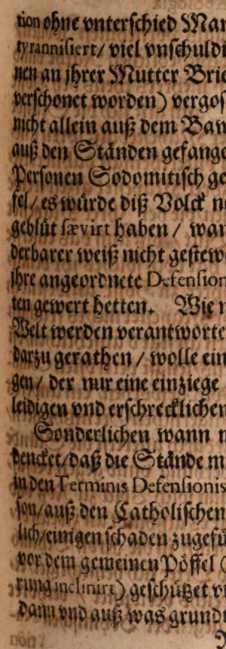 tion ohne vnterschied Man
tyrannisiert/ viel vnschuldi
nen an jhrer Mutter Brü
verschonet worden) vergos
nicht allein auß dem Baw
auß den Ständen gefange
Personen Sodomitisch ge
fel/ es würde diß Volck n
geblüt sævirt haben / wan
derbarer weiß nicht gestew
jhre angeordnete Defension
ten gewert hetten. Wie n
Welt werden verantworte
darzu gerathen / wolle ein
gen/ der nur eine einziege
leidigen vnd erschrecklichen
Sonderlichen wann n
dencket/daß die Stände m
in den Terminis Defensionis
son/auß den Catholischen
lich/einigen schaden zugefü
vor dem gemeinen Pöffel (
rung inclinirt) geschützet v
dann vnd auß was grund